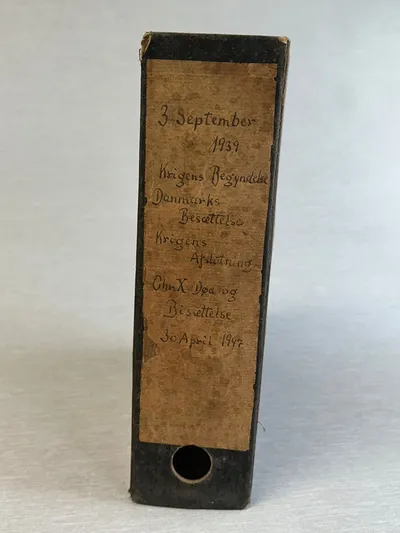 3 September
1939
Krigens Begyndelse
Danmarks
Besættelse
Krigens
Afslutning
Chr X Død og
Bisættelse
30 April 1947